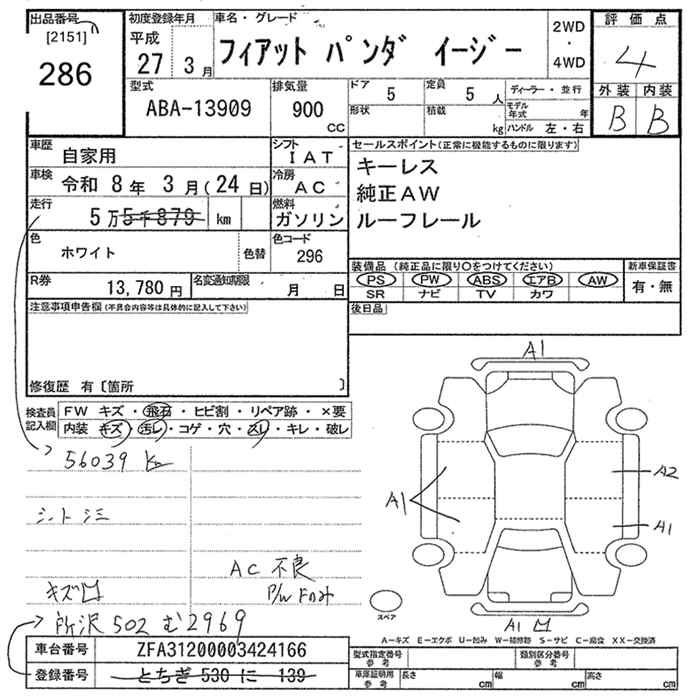 出品番号
[2151]
286
初度登録年月
平成
27 3月
車名・グレード
フィアット パンダ イージー
2WD
・
4WD
評価点
4
外装 内装
B B
型式
ABA-13909
排気量
900
CC
ドア 5
定員 5 人
形状
積載 kg
ディーラー・並行
モデル年式 年
ハンドル 左・右
車歴
自家用
シフト
IAT
車検 令和 8年 3月(24日)
冷房
AC
走行 5万5千879 km
燃料
ガソリン
色
ホワイト
色替
色コード
296
R券
13,780円
名変通知期限
月 日
セールスポイント(正常に機能するものに限ります)
キーレス
純正AW
ルーフレール
装備品(純正品に限り○をつけてください)
PS PW ABS エアB AW
SR ナビ TV カワ
新車保証書
有・無
後日品
注意事項申告欄(不具合内容等は具体的に記入して下さい)
修復歴 有〔箇所 〕
検査員記入欄
FW キズ・飛石・ヒビ割・リペア跡・×要
内装 キズ・汚レ・コゲ・穴・スレ・キレ・破レ
56039 km
シート シミ
AC 不良
キズ凹
P/W Fのみ
所沢 502 む 2969
車台番号 ZFA31200003424166
登録番号 とちぎ 530 に 139
A1
A1
A2
A1
スペア
A1 凹
A-キズ E-エクボ U-凹み W-補修跡 S-サビ C-腐食 XX-交換済
型式指定番号
参考
類別区分番号
参考
車庫証明用
参考
長さ cm
幅 cm
高さ cm